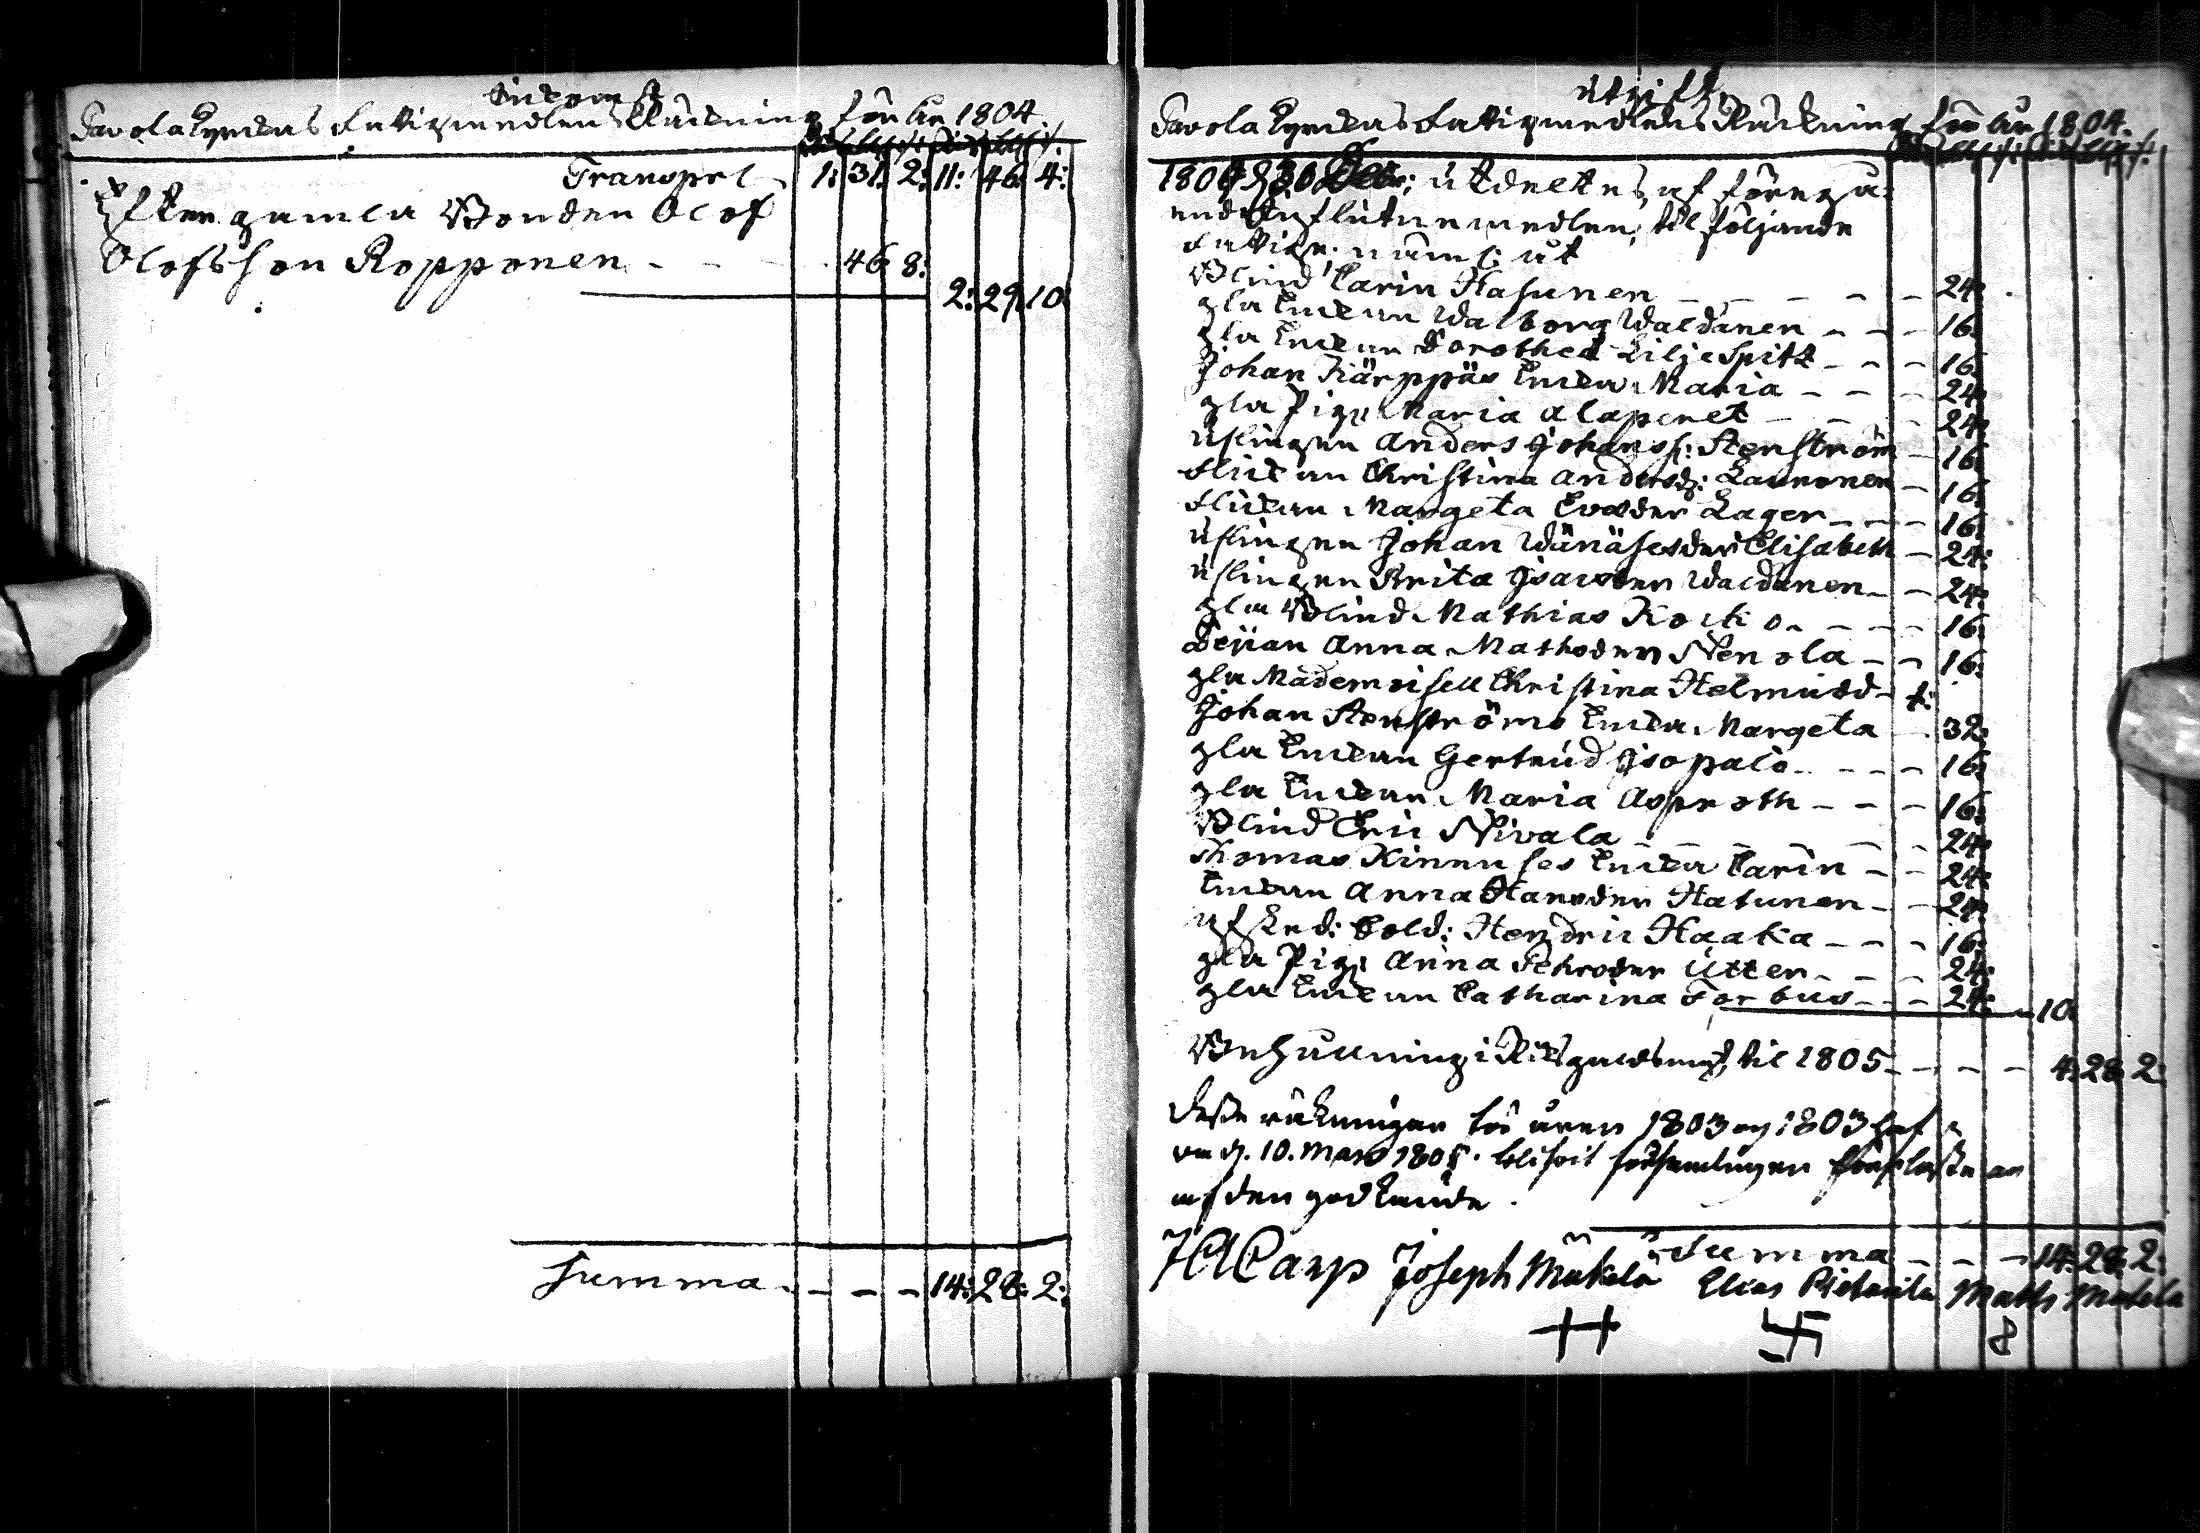 Inkomst
Savolax Kyrckas Fattigmedlens Räckning för År 1804.
Transport 1: 31. 2: 11: 46. 4:
Efter gamla Bonden Olof
Olofsson Ropponen - - - 46. 8:
2: 29. 10
Summa - - - - 14: 28: 2:
Utgift
Kyrckas Fattigmedlens Räckning för År 1804.
1804 d. 30 Dec: utdeltes af föregå-
ende influtne medlen, til följande
Fattige, näml: åt
Blind Carin Hasunen - - - - 24:
gla Enckan Walborg Waldanen - - - 16:
gla Enckan Dorothea Liljespitt - - - 16:
Johan Kärppäs Encka Maria - - - 24:
gla Pig: Maria Alaperet - - - 24:
Uslingen Anders Johanss: Stenström - 16:
Flickan Christina Andersd: Launonen - 16:
Flickan Margeta Ersder Lager - - - 16:
Uslingen Johan Wänäses der Elisabeth - 24:
Uslingen Brita Isacsder Waldanen - - 24:
gla Blind Mathias Korko - - - - 16:
Anna Mathsder Nenola - - 16:
gla Mademoisell Christina Helmudd - 1:
Johan Stenströms Encka Margeta - 32:
gla Enckan Gertrud Isopalo - - - 16:
gla Enckan Maria Asproth - - - 16:
Blind Eric Nivala - - - - 24:
Thomas Kinnuses Encka Carin - - 24:
Enckan Anna Hansder Hatunen - - 24:
afsked: Sold: Hendric Haaka - - - 16:
gla Pig: Anna Utter - - - 24:
gla Enckan Catharina Forbus - - - 24:
10.
Behållning i Riksgäldsmt, til 1805 - - - - 4: 28. 2:
Desse räkningar för åren 1803 og 1803 haf
d. 10. Mars 1805. blifvit församlingen föreläste
af den godkände.
Summa - - - 14: 28. 2:
HCarp Joseph Mäkelä Elias Pietarila Matts Mäkelä